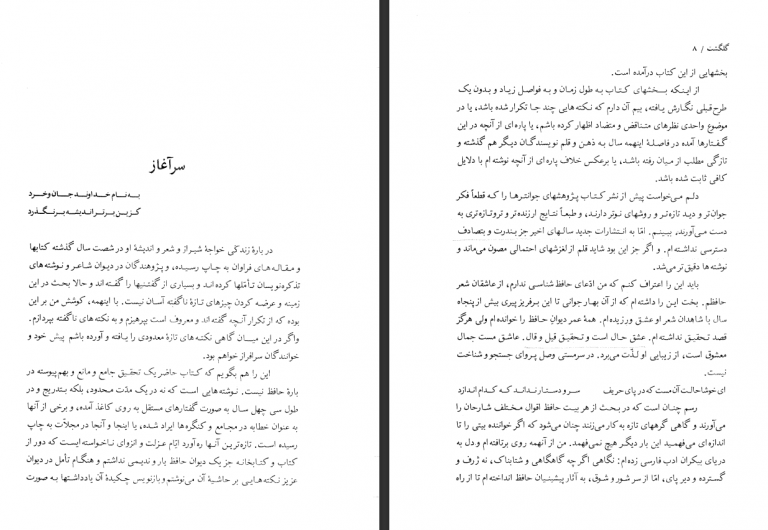 سرآغاز
به نام خداوند جان و خرد
کزین برتر اندیشه برنگذرد
در بارهٔ زندگی خواجهٔ شیراز و شعر و اندیشهٔ او در شصت سال گذشته کتابها
و مقاله‌های فراوان به چاپ رسیده، و پژوهندگان در دیوان شاعر و نوشته‌های
تذکره‌نویسان تأملها کرده‌اند و بسیاری از گفتنیها را گفته‌اند و حالا بحث در این
زمینه و عرضه کردن چیزهای تازهٔ ناگفته آسان نیست. با اینهمه، کوشش من بر این
بوده که از تکرار آنچه گفته‌اند و معروف است بپرهیزم و به نکته‌های ناگفته بپردازم.
واگر در این میان گاهی نکته‌های تازهٔ معدودی را یافته و آورده باشم پیش خود و
خوانندگان سرافراز خواهم بود.
این را هم بگویم که کتاب حاضر یک تحقیق جامع و مانع و بهم پیوسته در
بارهٔ حافظ نیست. نوشته‌هایی است که نه در یک مدّت محدود، بلکه بتدریج و در
طول سی چهل سال به صورت گفتارهای مستقل به روی کاغذ آمده، و برخی از آنها
به عنوان خطابه در مجامع و کنگره‌ها ایراد شده، یا اینجا و آنجا در مجلّات به چاپ
رسیده است. تازه‌ترین آنها ره‌آورد ایّام عزلت و انزوای ناخواسته‌ایست که دور از
کتاب و کتابخانه جز یک دیوان حافظ یار و ندیمی نداشتم و هنگام تأمل در دیوان
عزیز نکته‌هایی بر حاشیهٔ آن می‌نوشتم و بازنویس چکیدهٔ آن یادداشتها به صورت
گلگشت / ۸
بخشهایی از این کتاب درآمده است.
از اینکه بخشهای کتاب به طول زمان و به فواصل زیاد و بدون یک
طرح قبلی نگارش یافته، بیم آن دارم که نکته‌هایی چند جا تکرار شده باشد، یا در
موضوع واحدی نظرهای متناقض و متضاد اظهار کرده باشم، یا پاره‌ای از آنچه در این
گفتارها آمده در فاصلهٔ اینهمه سال به ذهن و قلم نویسندگان دیگر هم گذشته و
تازگی مطلب از میان رفته باشد، یا برعکس خلاف پاره‌ای از آنچه نوشته‌ام با دلایل
کافی ثابت شده باشد.
دلم می‌خواست پیش از نشر کتاب پژوهشهای جوانترها را که قطعاً فکر
جوان‌تر و دید تازه‌تر و روشهای نوتر دارند، و طبعاً نتایج ارزنده‌تر و تروتازه‌تری به
دست می‌آورند، ببینم. امّا به انتشارات جدید سالهای اخیر جز بندرت و بتصادف
دسترسی نداشته‌ام. و اگر جز این بود شاید قلم از لغزشهای احتمالی مصون می‌ماند و
نوشته‌ها دقیق‌تر می‌شد.
باید این را اعتراف کنم که من ادّعای حافظ شناسی ندارم، از عاشقان شعر
حافظم. بخت این را داشته‌ام که از آن بهار جوانی تا این برفریز پیری بیش از پنجاه
سال با شاهدان شعر او عشق ورزیده‌ام. همهٔ عمر دیوان حافظ را خوانده‌ام ولی هرگز
قصد تحقیق نداشته‌ام. عشق حال است و تحقیق قیل و قال. عاشق مست جمال
معشوق است، از زیبایی او لذّت می‌برد. در سرمستی وصل پروای جستجو و شناخت
نیست.
ای خوشا حالت آن مست که در پای حریف سر و دستار نداند که کدام اندازد
رسم چنان است که در بحث از هر بیت حافظ اقوال مختلف شارحان را
می‌آورند و گاهی گرههای تازه به کار می‌زنند چنان می‌شود که اگر خواننده بیتی را تا
اندازه‌ای می‌فهمید این بار دیگر هیچ نمی‌فهمد. من از آنهمه روی برتافته‌ام و دل به
دریای بیکران ادب فارسی زده‌ام: نگاهی اگر چه گاهگاهی و شتابناک، نه ژرف و
گسترده و دیر پای، امّا از سر شور و شوق، به آثار پیشینیان حافظ انداخته‌ام تا از راه